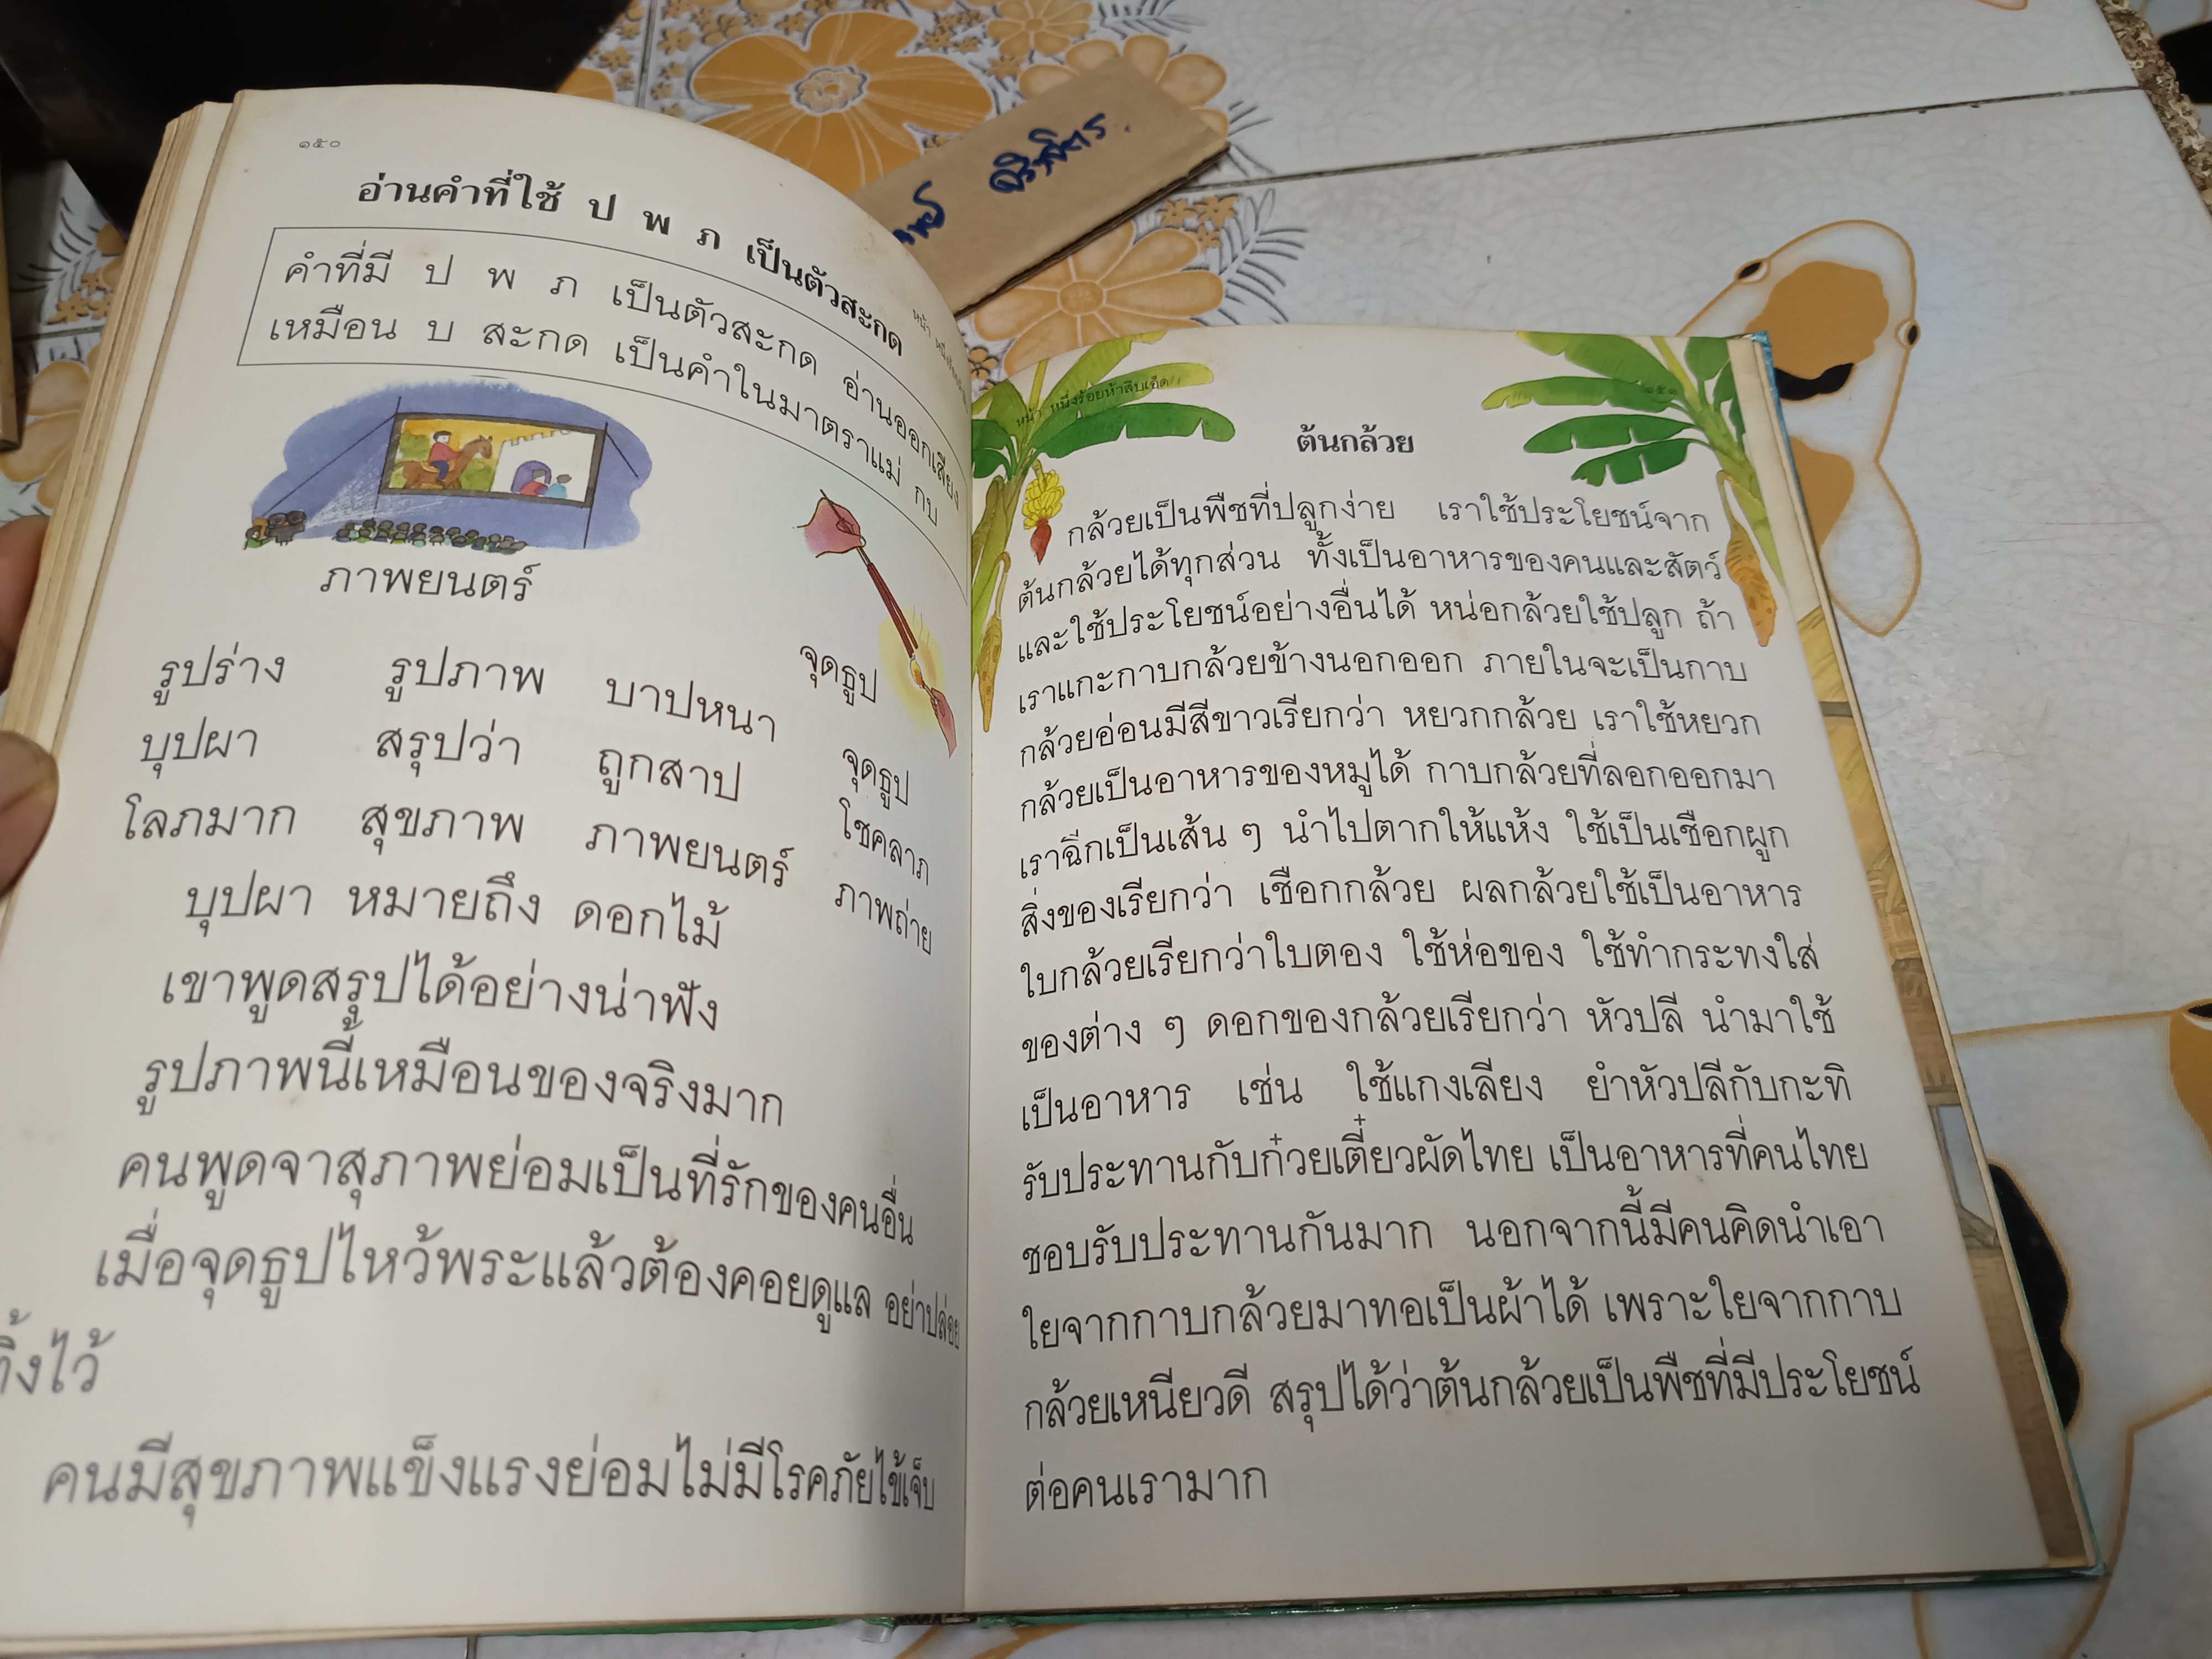 ๑๕๐
อ่านคำที่ใช้ ป พ ภ เป็นตัวสะกด
คำที่มี ป พ ภ เป็นตัวสะกด อ่านออกเสียง
เหมือน บ สะกด เป็นคำในมาตราแม่ กบ
ภาพยนตร์
จุดธูป
รูปร่าง รูปภาพ บาปหนา จุดธูป
บุปผา สรุปว่า ถูกสาป โชคลาภ
โลภมาก สุขภาพ ภาพยนตร์ ภาพถ่าย
บุปผา หมายถึง ดอกไม้
เขาพูดสรุปได้อย่างน่าฟัง
รูปภาพนี้เหมือนของจริงมาก
คนพูดจาสุภาพย่อมเป็นที่รักของคนอื่น
เมื่อจุดธูปไหว้พระแล้วต้องคอยดูแล อย่าปล่อย
ทิ้งไว้
คนมีสุขภาพแข็งแรงย่อมไม่มีโรคภัยไข้เจ็บ
หน้า หนึ่งร้อยห้าสิบเอ็ด
๑๕๑
ต้นกล้วย
กล้วยเป็นพืชที่ปลูกง่าย เราใช้ประโยชน์จาก
ต้นกล้วยได้ทุกส่วน ทั้งเป็นอาหารของคนและสัตว์
และใช้ประโยชน์อย่างอื่นได้ หน่อกล้วยใช้ปลูก ถ้า
เราแกะกาบกล้วยข้างนอกออก ภายในจะเป็นกาบ
กล้วยอ่อนมีสีขาวเรียกว่า หยวกกล้วย เราใช้หยวก
กล้วยเป็นอาหารของหมูได้ กาบกล้วยที่ลอกออกมา
เราฉีกเป็นเส้น ๆ นำไปตากให้แห้ง ใช้เป็นเชือกผูก
สิ่งของเรียกว่า เชือกกล้วย ผลกล้วยใช้เป็นอาหาร
ใบกล้วยเรียกว่าใบตอง ใช้ห่อของ ใช้ทำกระทงใส่
ของต่าง ๆ ดอกของกล้วยเรียกว่า หัวปลี นำมาใช้
เป็นอาหาร เช่น ใช้แกงเลียง ยำหัวปลีกับกะทิ
รับประทานกับก๋วยเตี๋ยวผัดไทย เป็นอาหารที่คนไทย
ชอบรับประทานกันมาก นอกจากนี้มีคนคิดนำเอา
ใยจากกาบกล้วยมาทอเป็นผ้าได้ เพราะใยจากกาบ
กล้วยเหนียวดี สรุปได้ว่าต้นกล้วยเป็นพืชที่มีประโยชน์
ต่อคนเรามาก